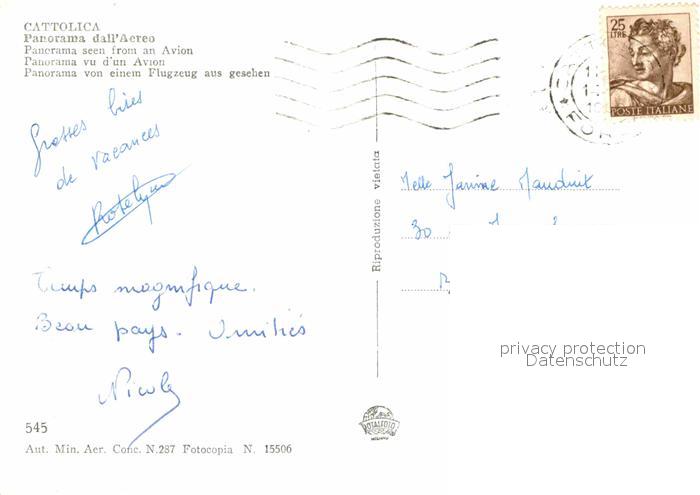 CATTOLICA
Panorama dall'Aereo
Panorama seen from an Avion
Panorama vu d'un Avion
Panorama von einem Flugzeug aus gesehen
25
LIRE
POSTE ITALIANE
Grosses bises
de vacances
Temps magnifique.
Beau pays. Amitiés
Nicole
Riproduzione vietata
Melle Janine Mauduit
30
privacy protection
Datenschutz
ROTALFOTO
MILANO
545
Aut. Min. Aer. Conc. N.287 Fotocopia N. 15506